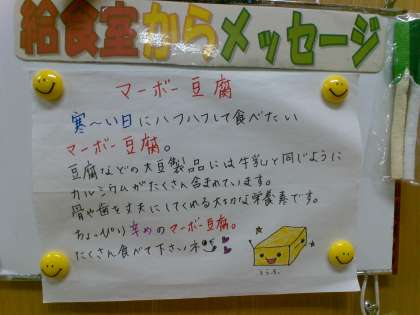 給食室からメッセージ
マーボー豆腐
寒〜い日にハフハフして食べたい
マーボー豆腐。
豆腐などの大豆製品には牛乳と同じように
カルシウムがたくさん含まれています。
骨や歯を丈夫にしてくれる大切な栄養素です。
ちょっぴり辛めのマーボー豆腐。
たくさん食べて下さいネ
とうふ